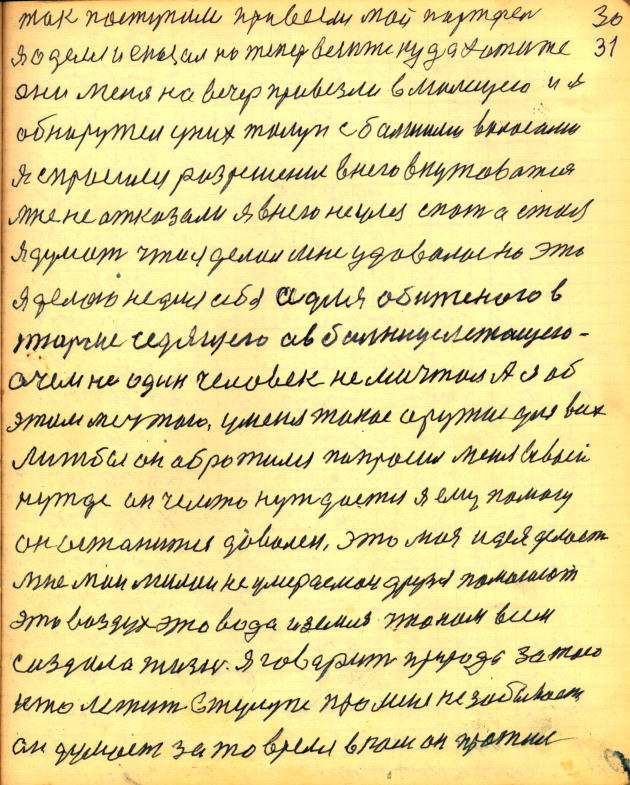 так поступили привезли мой партфел 30
я оделся и сказал но тепер везите куда хотите 31
они меня на вечер привезли в милицию и я
обнаружел у них тулуп с балшими волосами
я спросил разрешение в него вкутоватся
мне не отказали я в него не уся спот а стал
я думат что я делал мне удовалос но это
я делаю не для себя а для обиженого в
тюрме седящего а в болнице лежащего -
о чем не один человек не мичтал А я об
этом мечтаю, у меня такое оружие для вих
Литбы он обротился попросил меня в своей
нужде он чемто нуждается я ему помогу
он останится доволен, это моя идея делает
мне мои милои не умераемои друзя помогают
это воздух это вода и земля ... всем
создала жизн. Я говарит природа за того
кто лежит в тулупе про мене не забывает
он думает за то время в каком он прожил